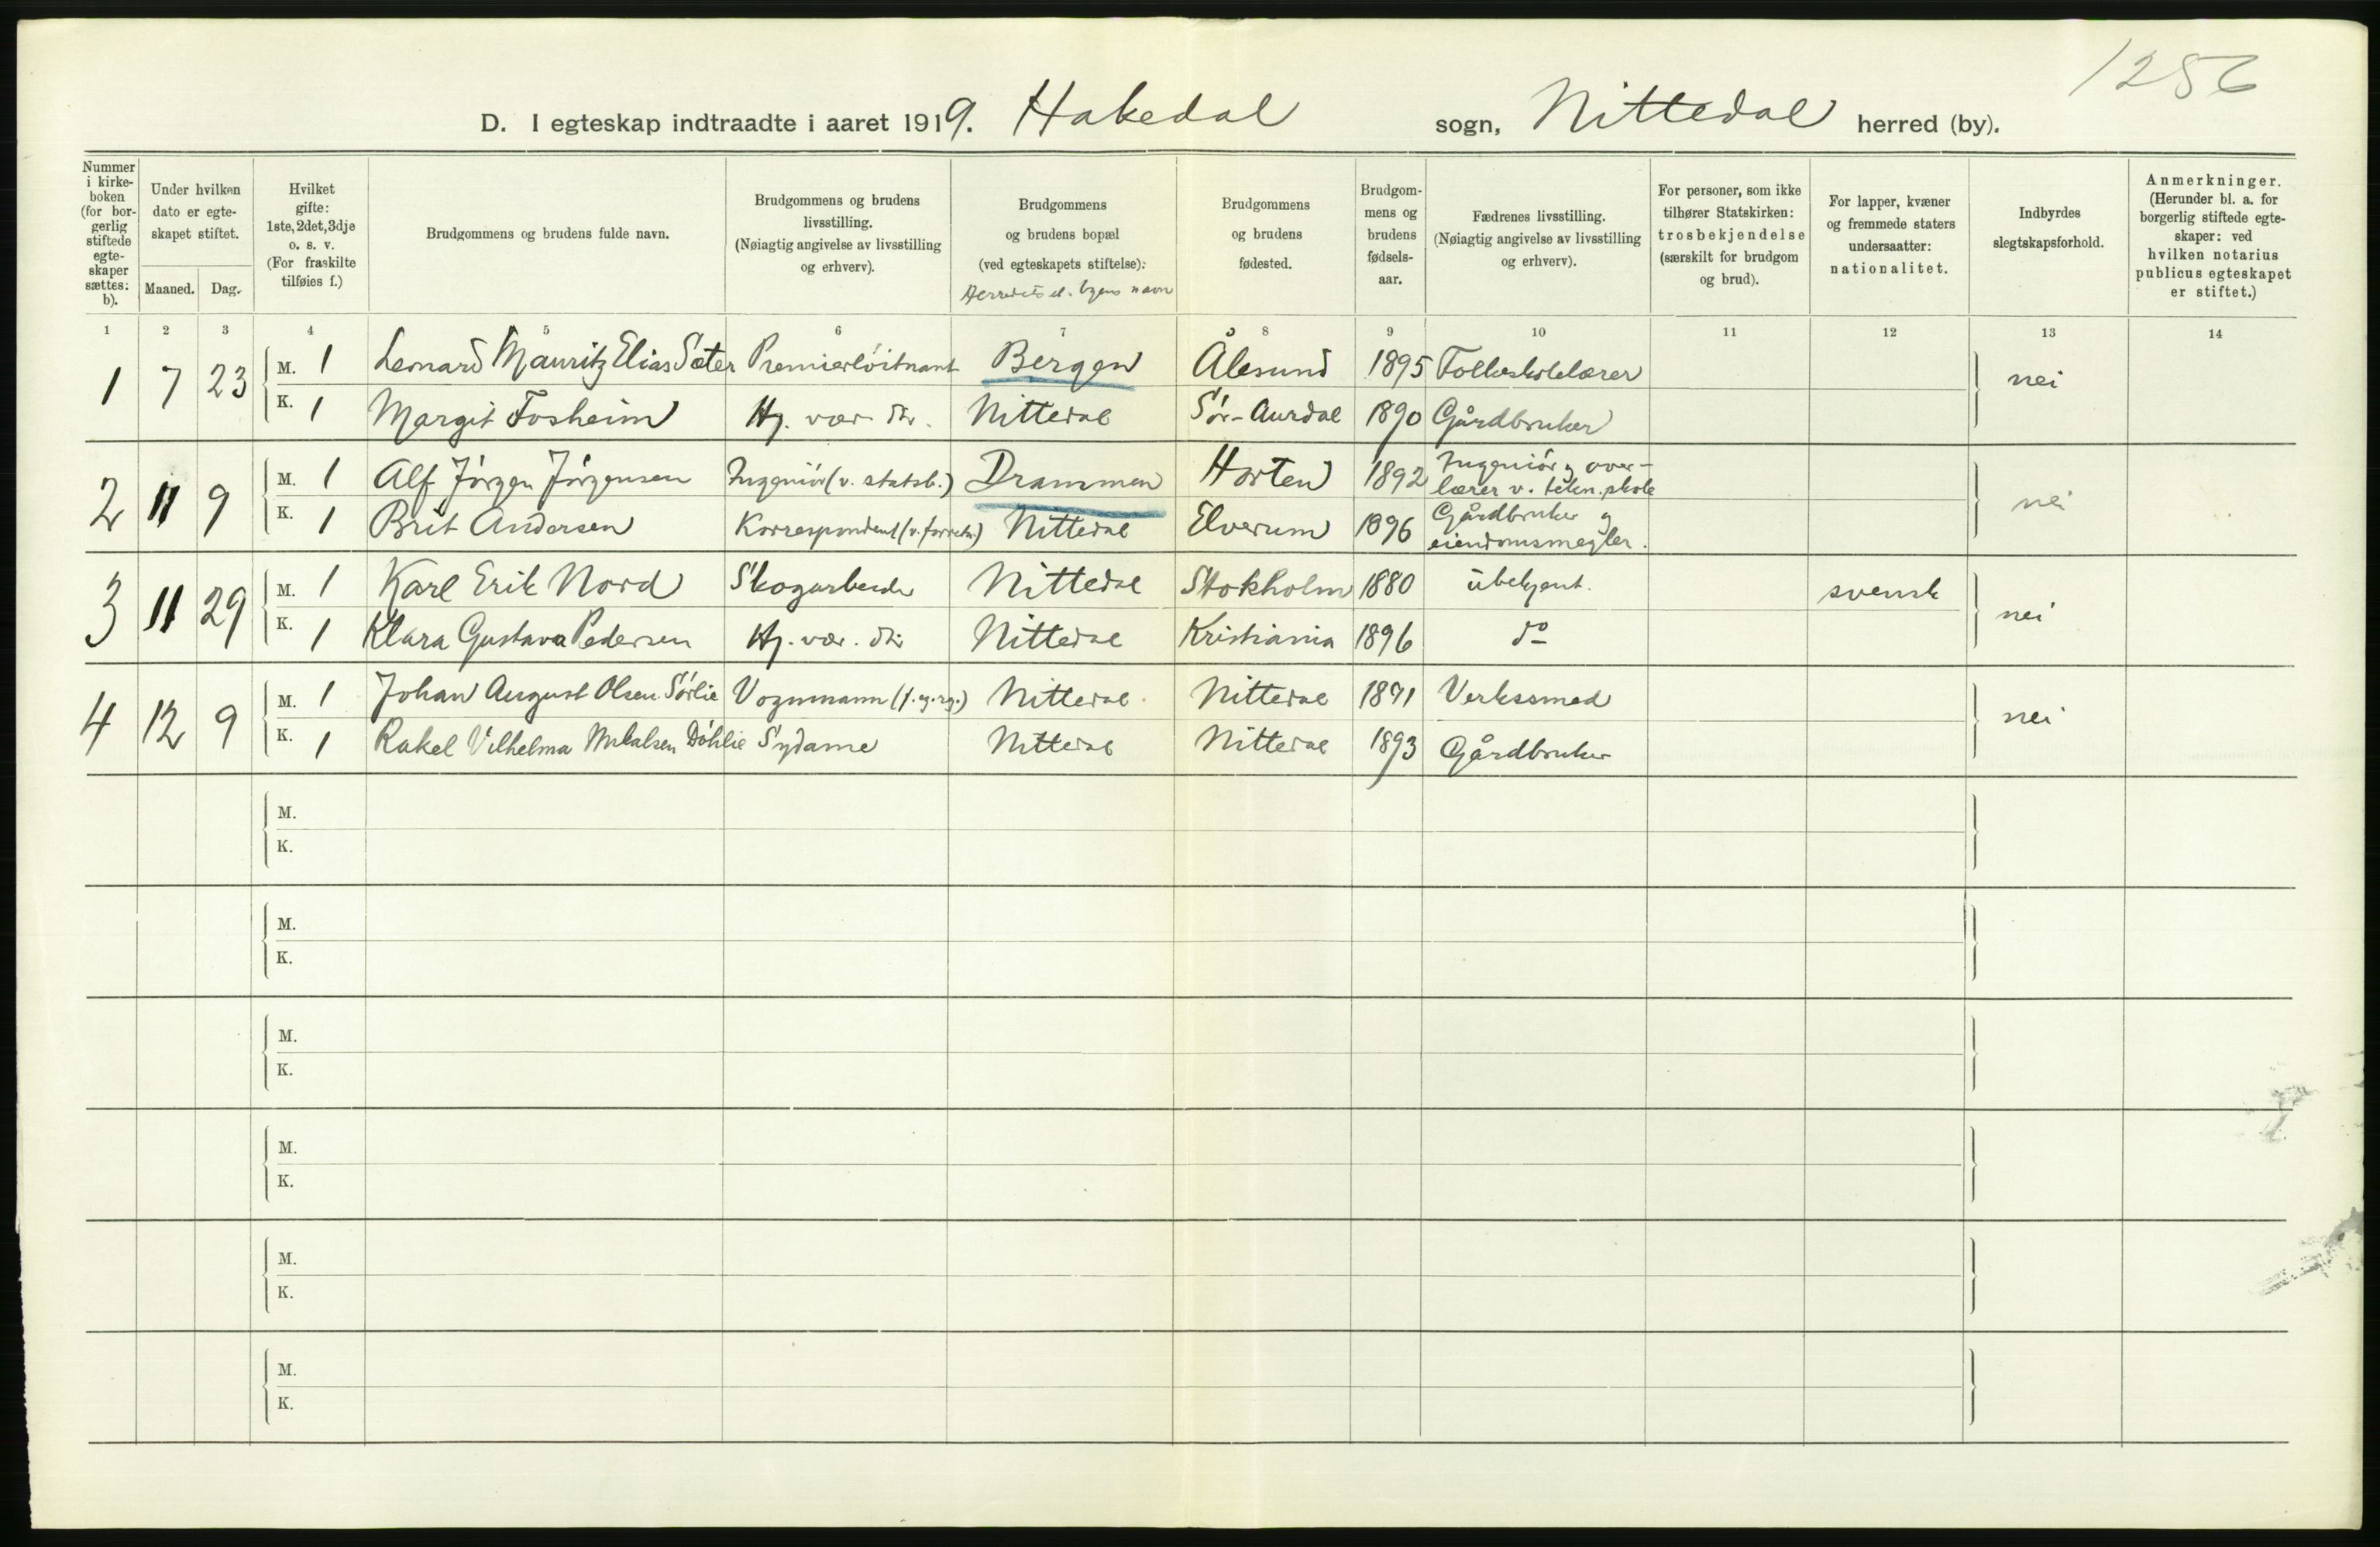 1256
D. I egteskap indtraadte i aaret 1919. Hakedal sogn, Nittedal herred (by).
Nummer i kirkeboken (for borgerlig stiftede egteskaper sættes: b).
Under hvilken dato er egteskapet stiftet.
Maaned. Dag.
Hvilket gifte: 1ste, 2det, 3dje o. s. v. (For fraskilte tilføies f.)
Brudgommens og brudens fulde navn.
Brudgommens og brudens livsstilling. (Nøiagtig angivelse av livsstilling og erhverv).
Brudgommens og brudens bopæl (ved egteskapets stiftelse): Herredets el. byens navn
Brudgommens og brudens fødested.
Brudgommens og brudens fødselsaar.
Fædrenes livsstilling. (Nøiagtig angivelse av livsstilling og erhverv).
For personer, som ikke tilhører Statskirken: trosbekjendelse (særskilt for brudgom og brud).
For lapper, kvæner og fremmede staters undersaatter: nationalitet.
Indbyrdes slegtskapsforhold.
Anmerkninger. (Herunder bl. a. for borgerlig stiftede egteskaper: ved hvilken notarius publicus egteskapet er stiftet.)
1 2 3 4 5 6 7 8 9 10 11 12 13 14
1 7 23 M. 1 Lenard Mauritz Elias Sæter Premierløitnant Bergen Ålesund 1895 Folkeskolelærer nei
K. 1 Margit Fosheim Hj. vær. dtr. Nittedal Sør-Aurdal 1890 Gårdbruker
2 11 9 M. 1 Alf Jörgen Jörgensen Ingeniör (v. statsb.) Drammen Horten 1892 Ingeniör og overlærer v. tekn. skole nei
K. 1 Brit Andersen Korrespondent (v. forretn.) Nittedal Elverum 1896 Gårdbruker og eiendomsmegler.
3 11 29 M. 1 Karl Erik Nord Skogarbeider Nittedal Stokholm 1880 ubekjent. svensk nei
K. 1 Klara Gustava Pedersen Hj. vær. dtr Nittedal Kristiania 1896 do
4 12 9 M. 1 Johan August Olsen Sörlie Vognmann Nittedal Nittedal 1891 Verkssmed nei
K. 1 Rakel Vilhelma Mikalsen Döhlie Sydame Nittedal Nittedal 1893 Gårdbruker
M.
K.
M.
K.
M.
K.
M.
K.
M.
K.
M.
K.